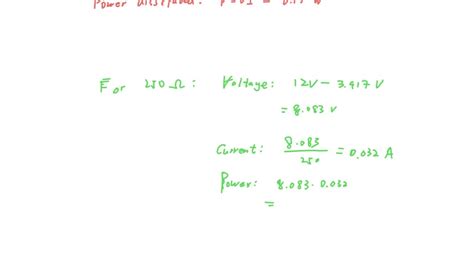 Power dissipated:
For 250 Ω: Voltage: 12V - 3.917 V
= 8.083 V
Current: 8.083 / 250 = 0.032 A
Power: 8.083 · 0.032
=